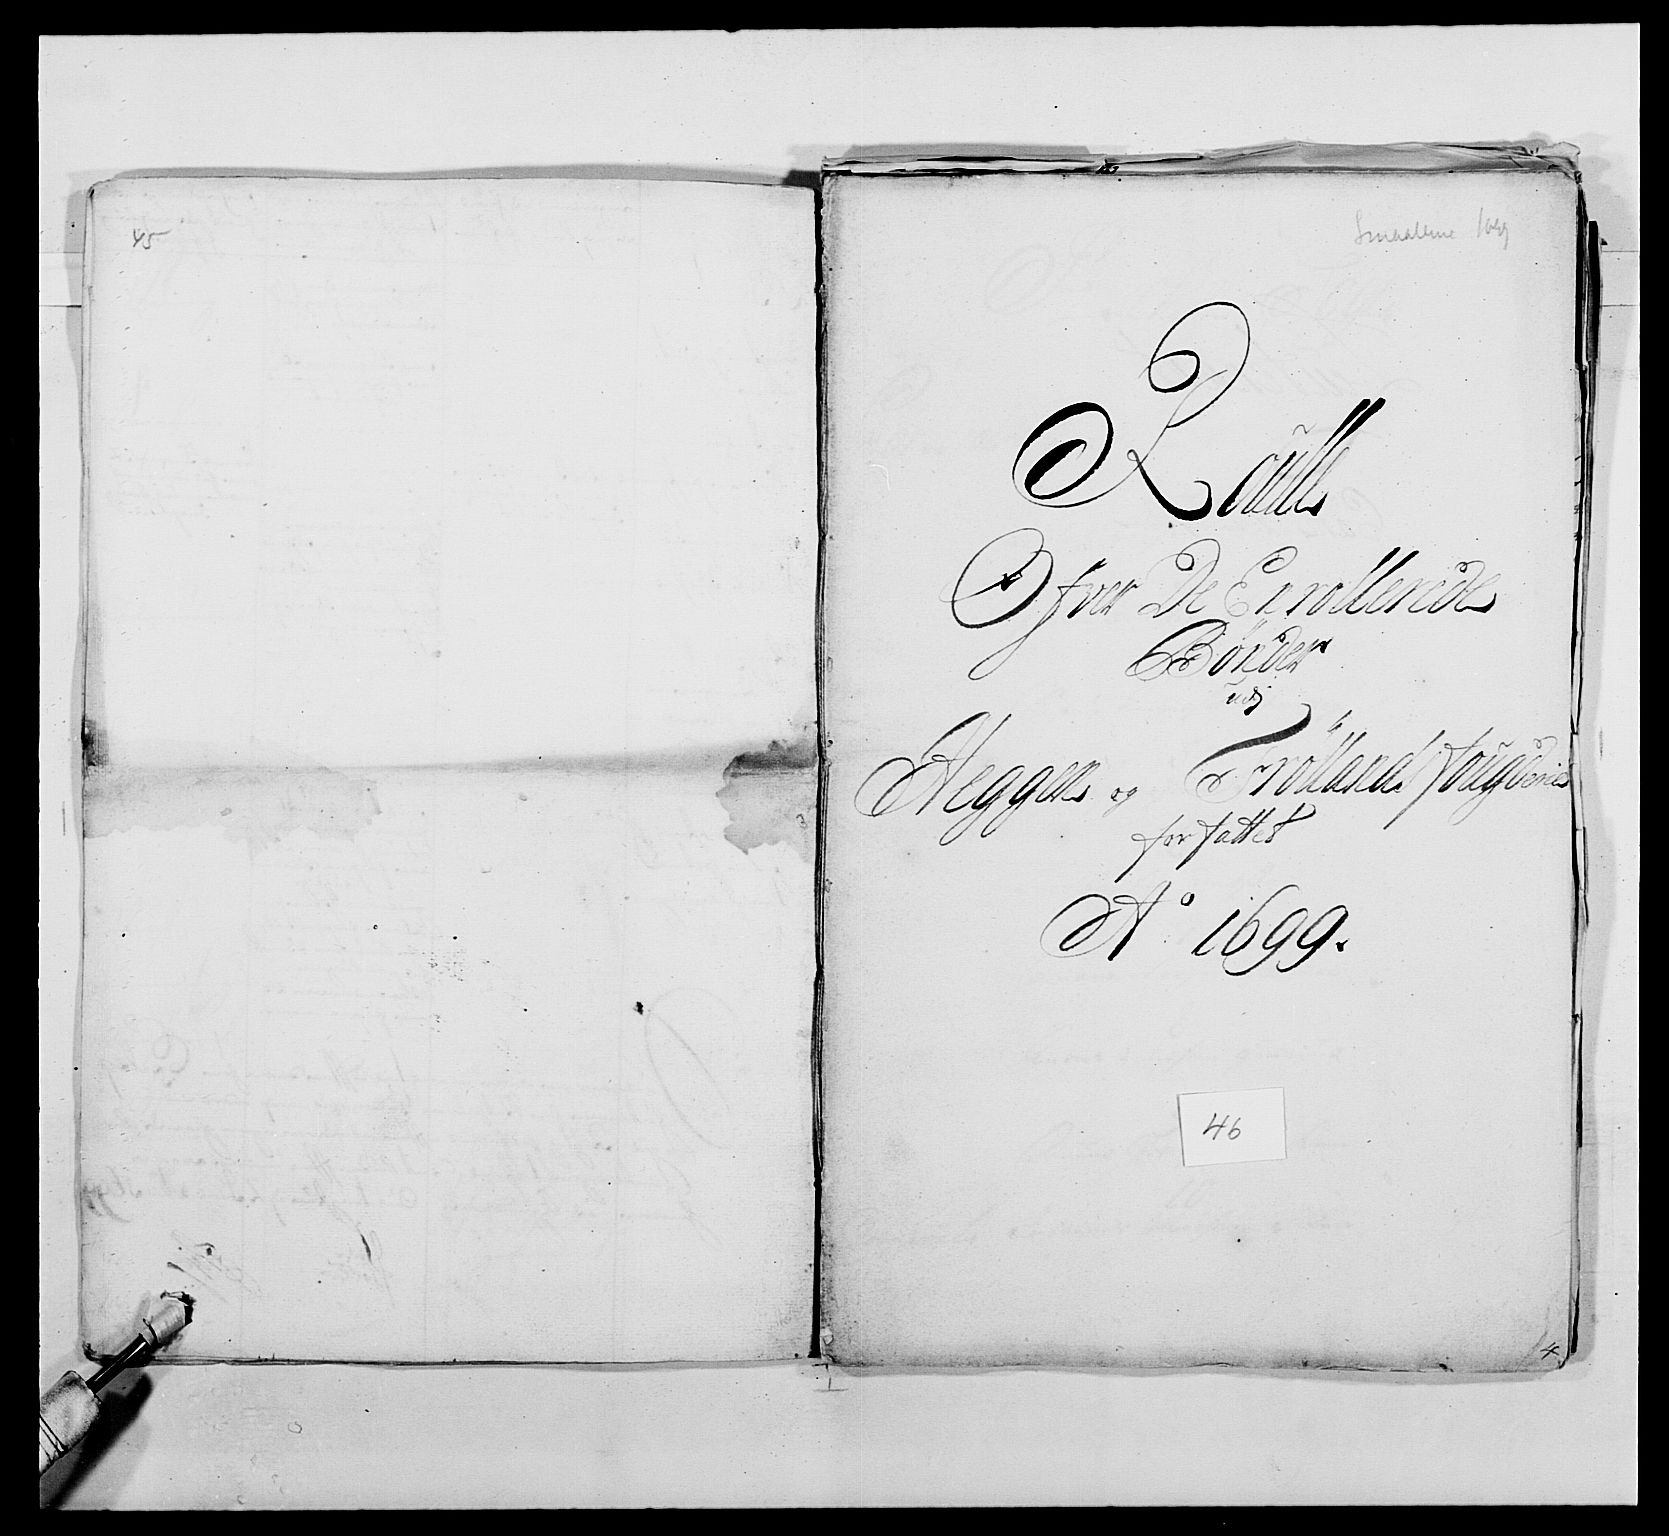 45
Smaalene 1699
Roúlle
Ofver De Enrollerede
Bønder
udj
Heggen og Frölland fougderie
forfattet
A° 1699.
46
4